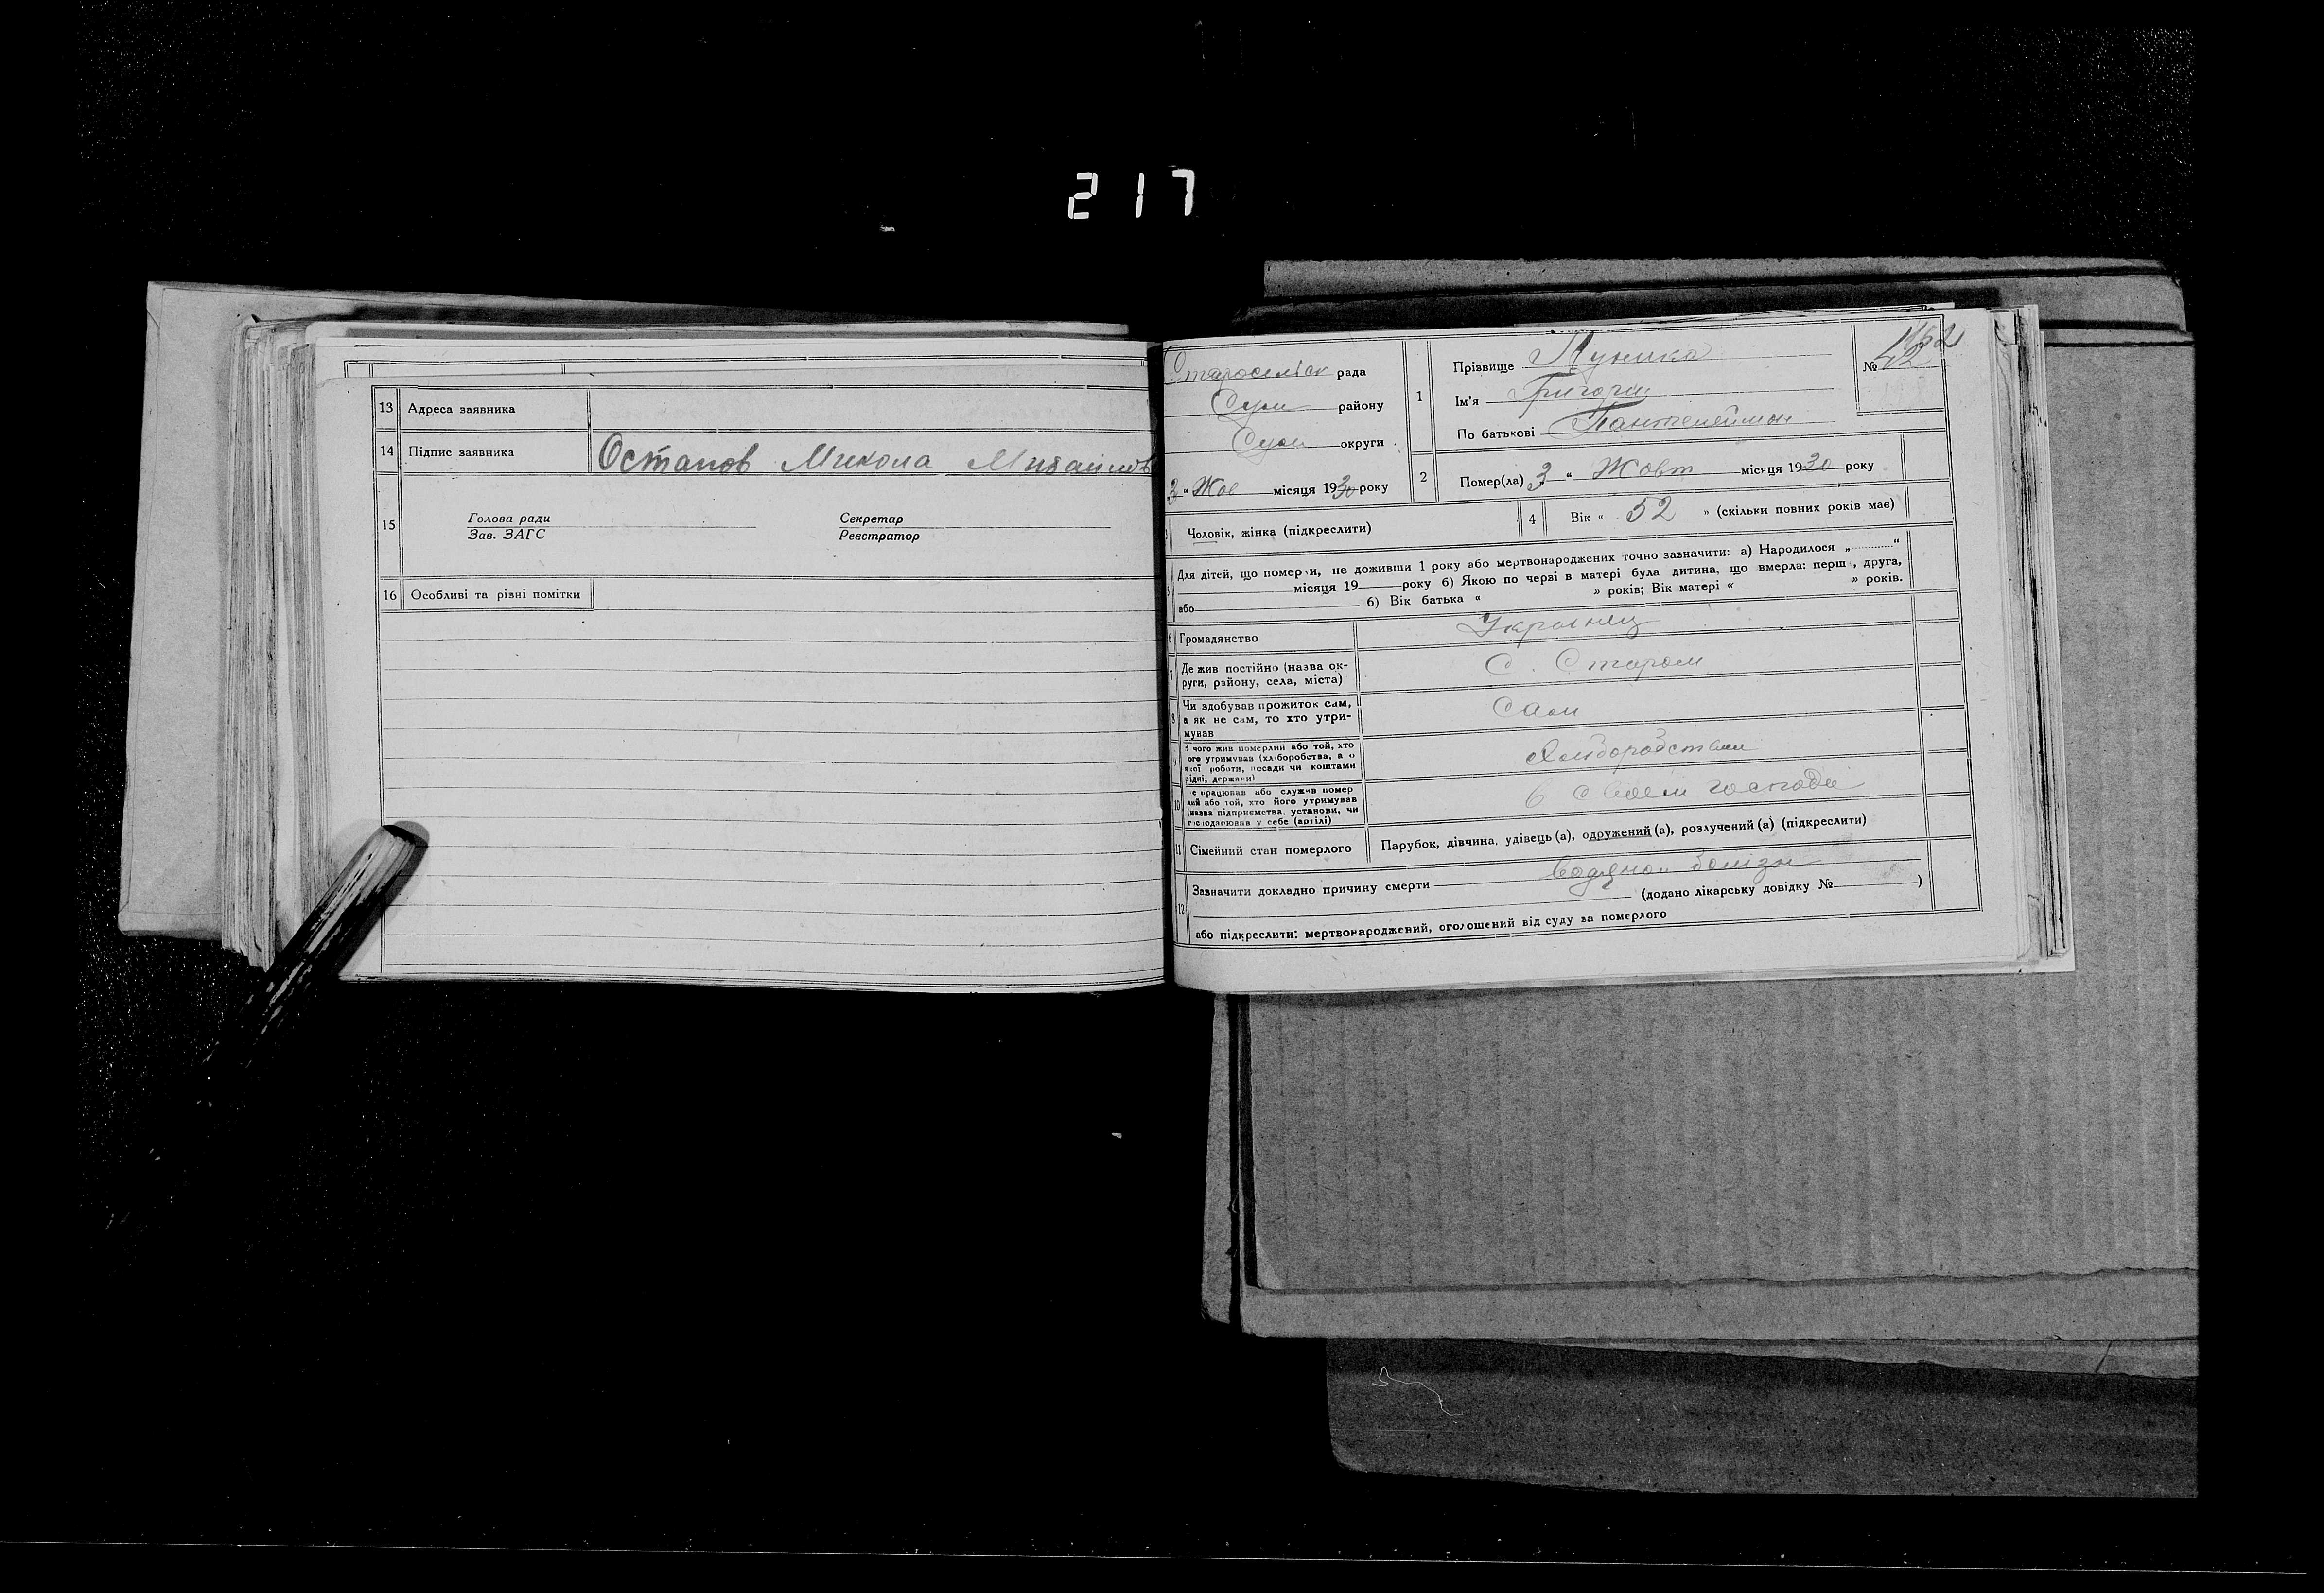 217
13 Адреса заявника
14 Підпис заявника Остапов Микола Михайлов
15 Голова ради Секретар
Зав. ЗАГС Реєстратор
16 Особливі та різні помітки
Староселіск рада
Сум району
Сум округи
3 " Жов місяця 1930 року
1 Прізвище
Ім'я Григорий
По батькові Пантелеймон
№ 42
152
2 Помер(ла) 3 " Жовт місяця 1930 року
Чоловік, жінка (підкреслити)
4 Вік « 52 » (скільки повних років має)
5 Для дітей, що померли, не доживши 1 року або мертвонароджених точно зазначити: а) Народилося „ “
місяця 19 року б) Якою по черзі в матері була дитина, що вмерла: перш , друга,
або б) Вік батька « » років; Вік матері « » років.
6 Громадянство Украінец
7 Де жив постійно (назва ок-
руги, району, села, міста) С. Старосіл
8 Чи здобував прожиток сам,
а як не сам, то хто утри-
мував Сам
9 З чого жив померлий або той, хто
ого утримував (хліборобства, а о
якої роботи, посади чи коштами
рідні, держави) Хліборобством
10 е працював або служив помер
лий або той, хто його утримував
(назва підприємства, установи, чи
господарював у себе (артілі) в своем господ
11 Сімейний стан померлого Парубок, дівчина, удівець(а), одружений(а), розлучений(а) (підкреслити)
12 Зазначити докладно причину смерти
(додано лікарську довідку № )
або підкреслити: мертвонароджений, оголошений від суду за померлого